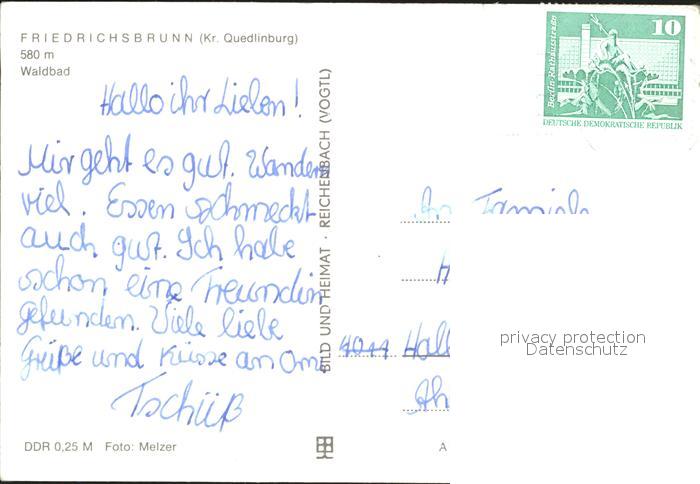 FRIEDRICHSBRUNN (Kr. Quedlinburg)
580 m
Waldbad
Hallo ihr Lieben!
Mir geht es gut. Wandern
viel. Essen schmeckt
auch gut. Ich habe
schon eine Freundin
gefunden. Viele liebe
Grüße und Küsse an Oma
Tschüß
DDR 0,25 M Foto: Melzer
BILD UND HEIMAT · REICHENBACH (VOGTL)
Berlin-Rathausstraße
10
DEUTSCHE DEMOKRATISCHE REPUBLIK
An Familie
H
Hall
Ah
A
privacy protection
Datenschutz